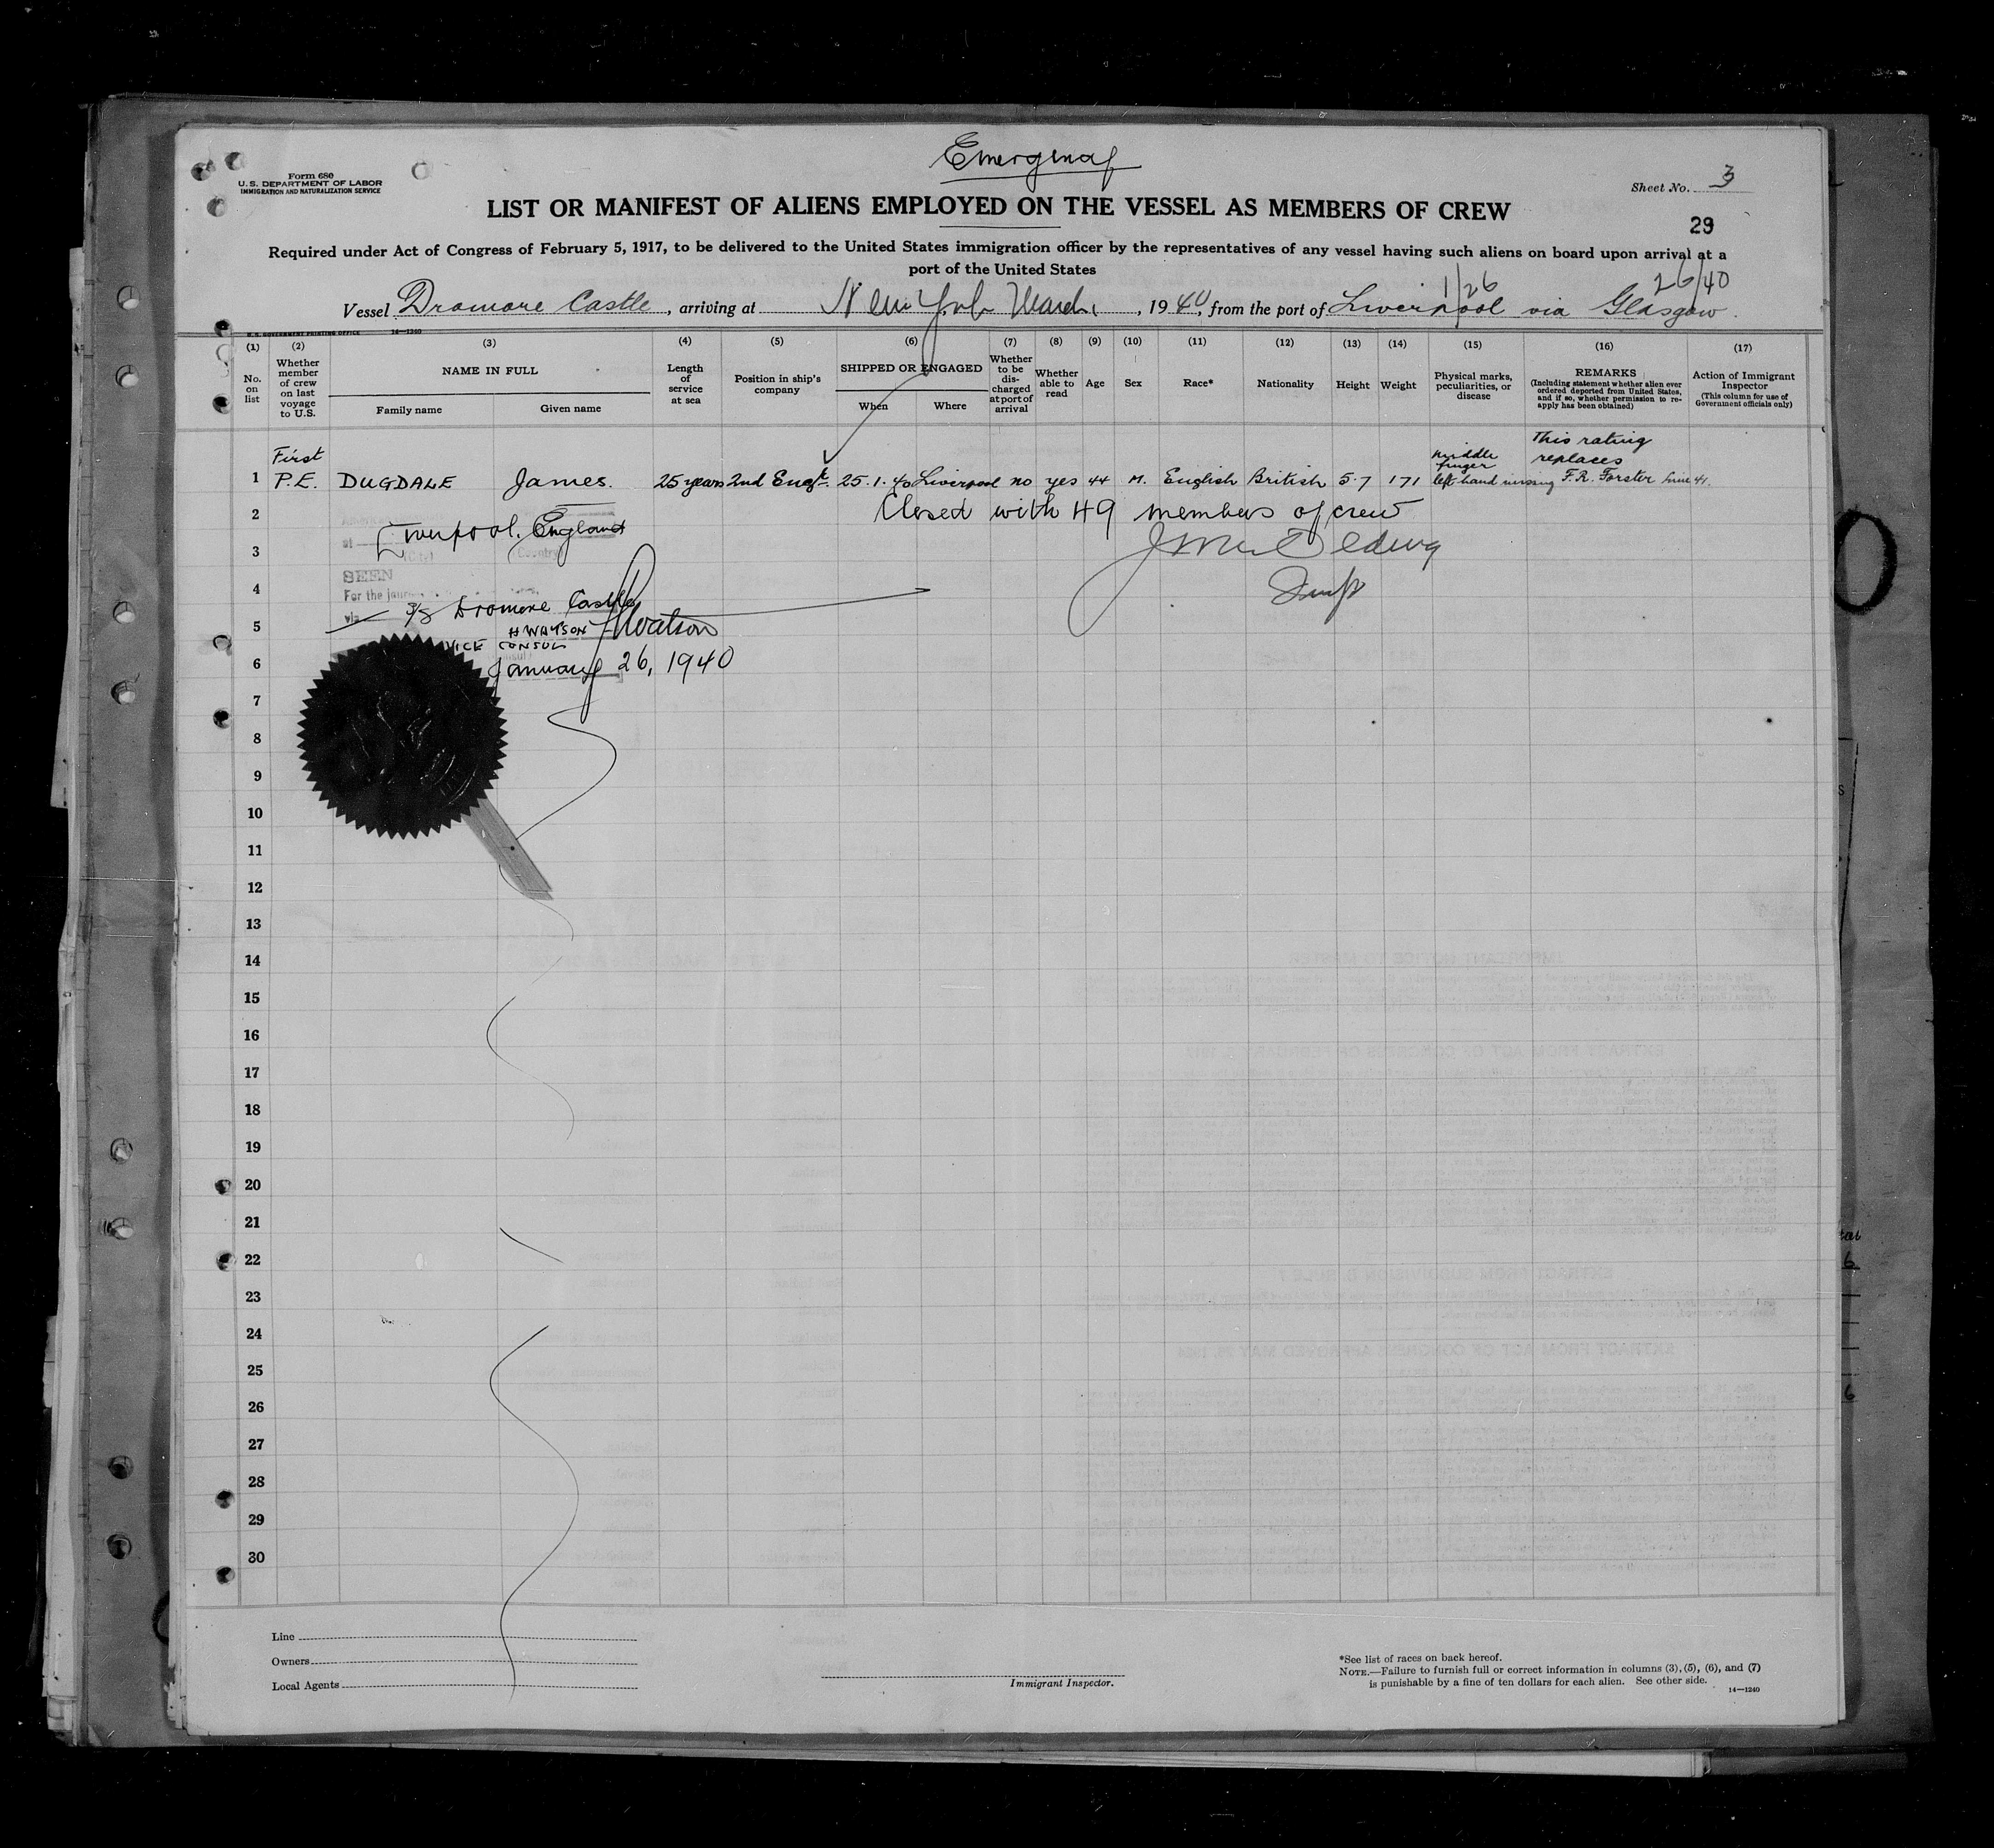 Form 680
U.S. DEPARTMENT OF LABOR
IMMIGRATION AND NATURALIZATION SERVICE
Sheet No. 3
LIST OR MANIFEST OF ALIENS EMPLOYED ON THE VESSEL AS MEMBERS OF CREW
29
Required under Act of Congress of February 5, 1917, to be delivered to the United States immigration officer by the representatives of any vessel having such aliens on board upon arrival at a
port of the United States
1/26 26/40
Vessel Dromore Castle, arriving at New York March, 1940, from the port of Liverpool via Glasgow.
U. S. GOVERNMENT PRINTING OFFICE 14—1240
(1) (2) (3) (4) (5) (6) (7) (8) (9) (10) (11) (12) (13) (14) (15) (16) (17)
No. on list
Whether member of crew on last voyage to U.S.
NAME IN FULL
Family name Given name
Length of service at sea
Position in ship's company
SHIPPED OR ENGAGED
When Where
Whether to be discharged at port of arrival
Whether able to read
Age
Sex
Race*
Nationality
Height
Weight
Physical marks, peculiarities, or disease
REMARKS
(Including statement whether alien ever ordered deported from United States, and if so, whether permission to reapply has been obtained)
Action of Immigrant Inspector
(This column for use of Government officials only)
1 First P.E. DUGDALE James. 25 years 2nd Eng'r. 25.1.40 Liverpool no yes 44 M. English British 5.7 171 middle finger left hand missing This rating replaces F.R. Forster Line 41.
2 Closed with 49 members of crew
Liverpool, England
at (City) (Country)
3
SEEN
4
For the journey
via S/S Dromore Castle
5
H WATSON HWatson
VICE CONSUL
6 January 26, 1940
7
8
9
10
11
12
13
14
15
16
17
18
19
20
21
22
23
24
25
26
27
28
29
30
Line
Owners
Local Agents
Immigrant Inspector.
*See list of races on back hereof.
NOTE.—Failure to furnish full or correct information in columns (3), (5), (6), and (7)
is punishable by a fine of ten dollars for each alien. See other side.
14—1240